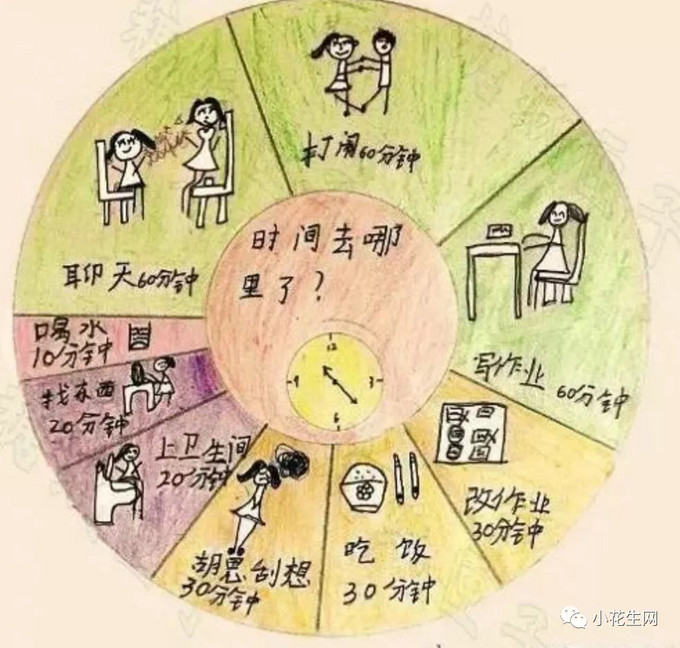 打闹60分钟
时间去哪
里了？
聊天60分钟
写作业 60分钟
喝水
10分钟
找东西
20分钟
上卫生间
20分钟
胡思刮想
30分钟
吃饭
30分钟
改作业
30分钟
12
9
3
6
小花生网